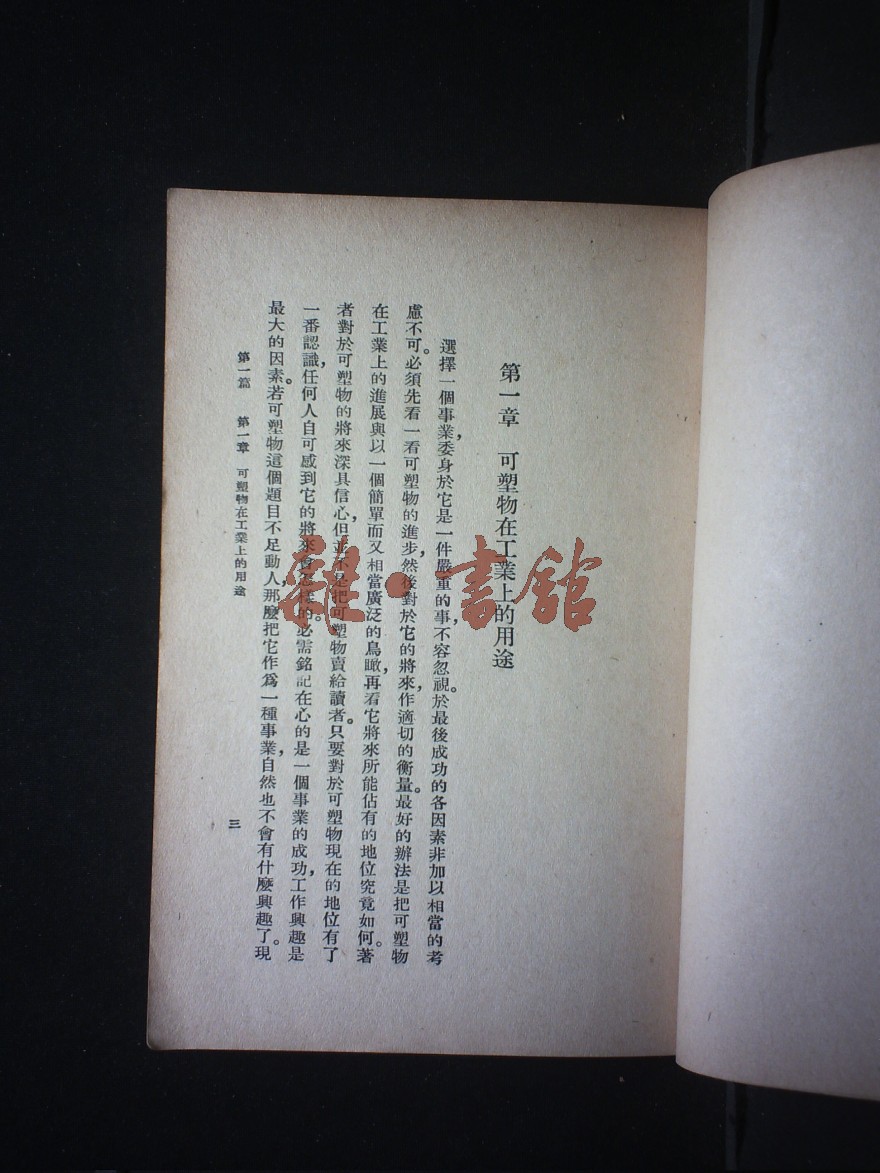 第一章 可塑物在工業上的用途
選擇一個事業，委身於它是一件嚴重的事，不容忽視。於最後成功的各因素非加以相當的考
慮不可。必須先看一看可塑物的進步，然後對於它的將來，作適切的衡量。最好的辦法是把可塑物
在工業上的進展與以一個簡單而又相當廣泛的鳥瞰，再看它將來所能佔有的地位究竟如何。著
者對於可塑物的將來深具信心，但並不是把可塑物賣給讀者。只要對於可塑物現在的地位有了
一番認識，任何人自可感到它的將來會怎樣的。必需銘記在心的是一個事業的成功，工作興趣是
最大的因素。若可塑物這個題目不足動人，那麼把它作爲一種事業，自然也不會有什麼興趣了。現
第一篇 第一章 可塑物在工業上的用途
三
雜·書館